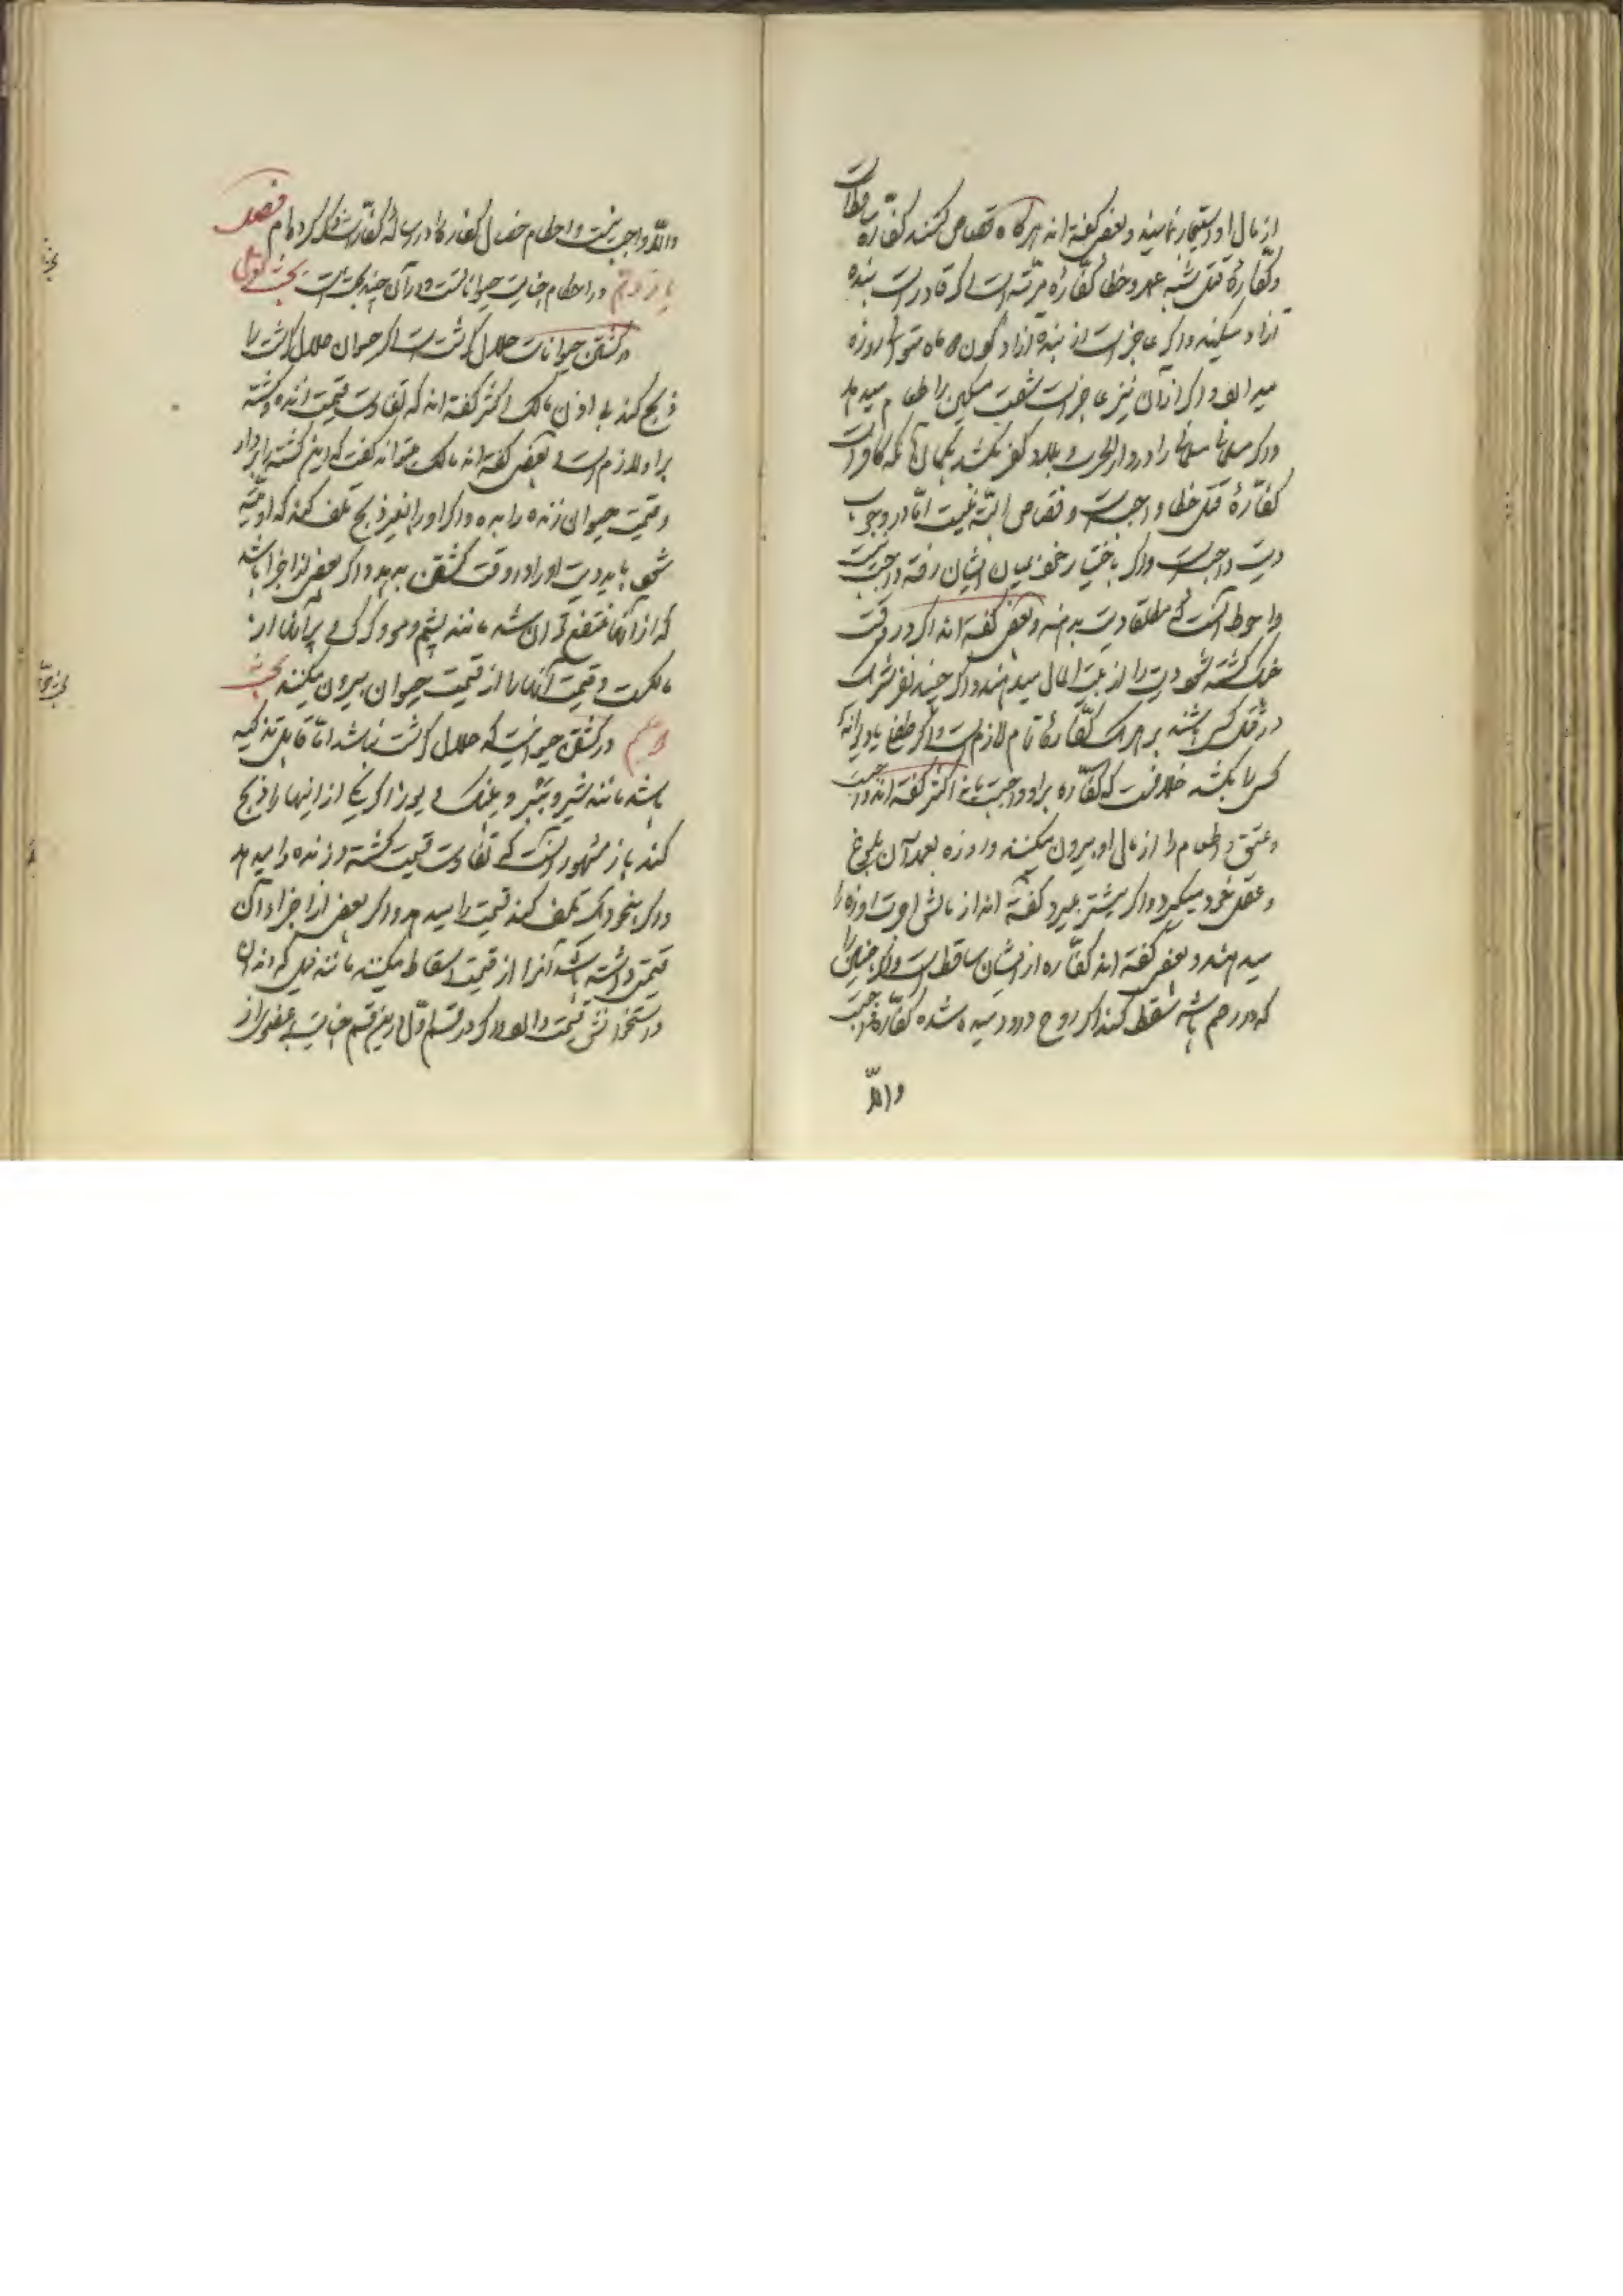 از مال او استیجار نمایند و بعضی گفته اند هرگاه قصاص کنند کفاره ساقط است
و کفارهٔ قتل شبه عمد و خطا کفارهٔ مرتبه است اگر قادر است بنده
آزاد میکند و اگر عاجز است از بنده آزاد کردن دو ماه متوالی روزه
میدارد و اگر از آن نیز عاجز است شصت مسکین را طعام میدهد
و اگر مسلمانی مسلمانی را در دار الحرب و بلاد کفر بکشد بگمان آنکه کافر است
کفّارهٔ قتل خطا واجبست و قصاص البتّه نیست امّا در وجوب
دیت واجبست و اگر باختیار خود میان ایشان رفته واجب نیست
و احوط آنست که مطلقا دیت بدهند و بعضی گفته اند اگر در وقت
جنگ کشته شود دیت را از بیت المال میدهند و اگر چند نفر شریک
در قتل کسی باشند بر هر یک کفّارهٔ تمام لازم است و اگر طفلی یا دیوانهٔ
کسی را بکشد خلافست که کفّاره بر او واجبست یا نه اکثر گفته اند واجبست
و عتق و اطعام را از مال او بیرون میکنند و روزه بعد از آن بلوغ
و عقل خود میگیرد و اگر پیشتر بمیرد گفته اند از مالش اجرت روزه را
میدهند و بعضی گفته اند کفّاره از ایشان ساقط است و اگر جنینی را
که در رحم باشد سقط کنند اگر روح در او دمیده شده کفّاره واجبست
والّا
والّا واجب نیست و احکام خصال کفاره را در رسالهٔ کفّارات ذکر کرده ام فصل
یازدهم در احکام جنایت حیوانات است و در آن چند بحث است بحث اول
در کشتن حیوانات حلال گوشت است اگر حیوان حلال گوشت را
ذبح کند بی اذن مالک اکثر گفته اند که تفاوت قیمت زنده و کشته
بر او لازم است و بعضی گفته اند مالک میتواند گفت که این کشته را بردار
و قیمت حیوان زنده را بده و اگر او را بغیر ذبح تلف کند که او میته
شود باید قیمت او را در وقت کشتن بدهد و اگر بعضی از اجزا باشد
که از آنها منتفع توان شد مانند پشم و مو و کرک و پر آنها از
مالکست و قیمت آنها را از قیمت حیوان بیرون میکنند بحث
دویم در کشتن حیوانیست که حلال گوشت نباشد امّا قابل تذکیه
باشد مانند شیر و ببر و پلنگ و یوز اگر یکی از اینها را ذبح
کند باز مشهور آنست که تفاوت قیمت کشته و زنده را میدهد
و اگر بنحو دیگر تلف کند قیمت را میدهد و اگر بعضی از اجزاء آن
قیمتی داشته باشد آنرا از قیمت اسقاط میکنند مانند فیل که دندان
و استخوانش قیمت دارد و اگر در قسم اوّل و در این قسم جنایت بر عضوی از